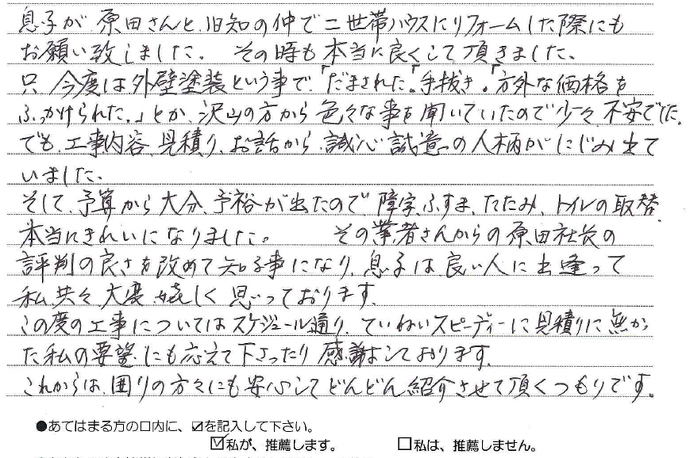 息子が原田さんと、旧知の仲で二世帯ハウスにリフォームした際にも
お願い致しました。その時も本当に良くして頂きました。
只今度は外壁塗装という事で、「だまされた。」「手抜き。」「方外な価格を
ふっかけられた。」とか、沢山の方から色々な事を聞いていたので少々不安でした。
でも、工事内容、見積り、お話から、誠心誠意の人柄がにじみ出て
いました。
そして、予算から大分、予裕が出たので障字、ふすま、たたみ、トイレの取替、
本当にきれいになりました。その業者さんからの原田社長の
評判の良さを改めて知る事になり、息子は良い人に出逢って
私共々、大変嬉しく思っております。
この度の工事についてはスケジュール通り、ていねいスピーディーに見積りに無かっ
た私の要望にも応えて下さったり感謝しております。
これからは、囲りの方々にも安心してどんどん紹介させて頂くつもりです。
●あてはまる方の口内に、☑を記入して下さい。
☑私が、推薦します。 □私は、推薦しません。